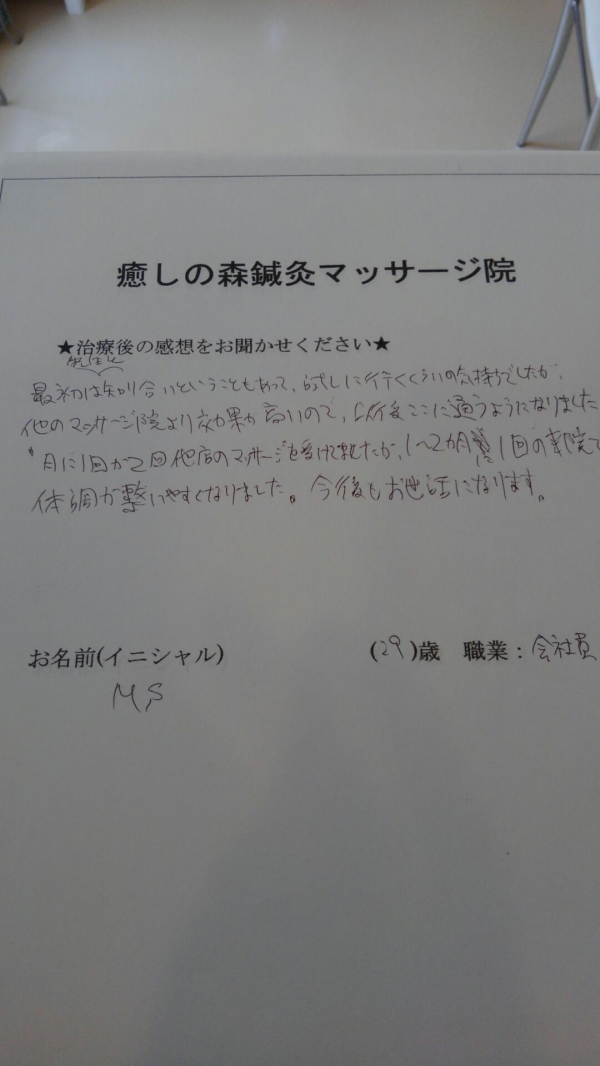 癒しの森鍼灸マッサージ院
★治療後の感想をお聞かせください★
先生と
最初は知り合いということもあって、試しに行くくらいの気持ちでしたが、
他のマッサージ院より効果が高いので、以後ここに通うようになりました
月に1回か2回他店のマッサージを受けてましたが、1〜2か月に1回の来院で
体調が整いやすくなりました。今後もお世話になります。
お名前(イニシャル) (29)歳 職業：会社員
M,S